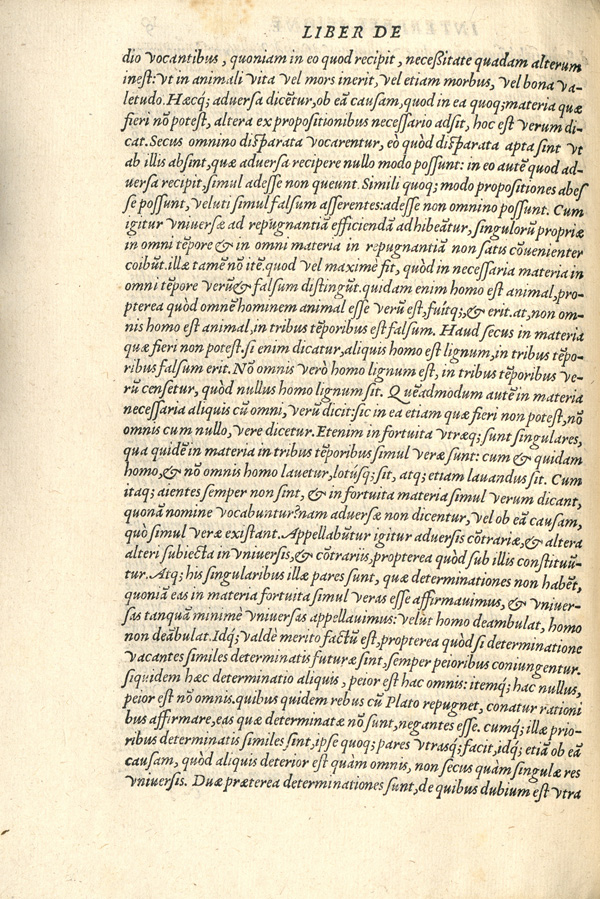 LIBER DE
dio vocantibus, quoniam in eo quod recipit, necessitate quadam alterum
inest: vt in animali vita vel mors inerit, vel etiam morbus, vel bona va-
letudo. Hæcq; adversa dicētur, ob eā causam, quod in ea quoq; materia quæ
fieri nō potest, altera ex propositionibus necessario adsit, hoc est verum di-
cat. Secus omnino disparata vocarentur, eo quòd disparata apta sint vt
ab illis absint, quæ adversa recipere nullo modo possunt: in eo autē quod ad-
versa recipit, simul adesse non queunt. Simili quoq; modo propositiones abes
se possunt, veluti simul falsum asserentes: adesse non omnino possunt. Cum
igitur vniversæ ad repugnantiā efficiendā adhibeātur, singulorū propriæ
in omni tēpore & in omni materia in repugnantiā non satis cōuenienter
coibūt. illæ tamē nō itē. quod vel maximè fit, quòd in necessaria materia in
omni tēpore verū & falsum distingūt. quidam enim homo est animal, pro-
pterea quòd omnē hominem animal esse verū est, fuitq;, & erit. at, non om-
nis homo est animal, in tribus tēporibus est falsum. Haud secus in materia
quæ fieri non potest. si enim dicatur, aliquis homo est lignum, in tribus tēpo-
ribus falsum erit. Nō omnis verò homo lignum est, in tribus tēporibus ve-
rū censetur, quòd nullus homo lignum sit. Quēadmodum autē in materia
necessaria aliquis cū omni, verū dicit: sic in ea etiam quæ fieri non potest, nō
omnis cum nullo, vere dicetur. Etenim in fortuita vtræq; sunt singulares,
qua quidē in materia in tribus tēporibus simul veræ sunt: cum & quidam
homo, & nō omnis homo lauetur, lotúsq; sit, atq; etiam lauandus sit. Cum
itaq; aientes semper non sint, & in fortuita materia simul verum dicant,
quonā nomine vocabuntur? nam adversæ non dicentur, vel ob eā causam,
quò simul veræ existant. Appellabūtur igitur adversis cōtrariæ, & altera
alteri subiecta in vniversis, & cōtrariis, propterea quòd sub illis constituū-
tur. Atq; his singularibus illæ pares sunt, quæ determinationes non habēt,
quoniā eas in materia fortuita simul veras esse affirmauimus, & vniver-
sas tanquā minimè vniversas appellauimus: velut homo deambulat, homo
non deābulat. Idq; valdè merito factū est, propterea quòd si determinatione
vacantes similes determinatis futuræ sint, semper peioribus coniungentur.
siquidem hæc determinatio aliquis, peior est hac omnis: itemq; hac nullus,
peior est nō omnis. quibus quidem rebus cū Plato repugnet, conatur rationi
bus affirmare, eas quæ determinatæ nō sunt, negantes esse. cumq; illæ prio-
ribus determinatis similes sint, ipse quoq; pares vtrasq; facit, idq; etiā ob eā
causam, quòd aliquis deterior est quàm omnis, non secus quàm singulæ res
vniversis. Duæ præterea determinationes sunt, de quibus dubium est vtra